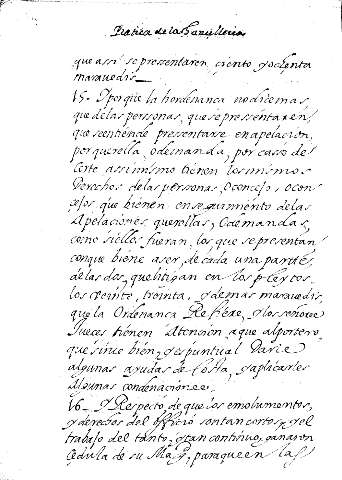 Pratica de la Chançilleria
que assi se pressentaren çiento y ochenta
marauedis
15. Y porque la hordenança no diçe mas,
que de las perssonas, que se pressentaren,
que se entiende pressentarse en apelaçion,
por querella, o demanda, por casso de
Corte assimismo tienen los mismos
Derechos de las personas, o conçejo, o con
çejos que bienen en seguimiento de las
Apelaciones, querellas, o demandas,
como si ellos fueran, los que se presentan
conque biene a ser, de cada una parte,
de las dos, que litigan en los pleytos
los veinte, treinta, y demas marauedis,
que la Ordenança Refiere, y los señores
Jueces tienen Atençion a que al portero,
que sirue bien, y es puntual Darle
algunas ayudas de costa, y aplicarles
algunas condenaciones
16. Y Respecto, de que los emolumentos,
y derechos del officio son tan cortos, y el
trabajo del tanto, y tan continuo, ganaron
Cedula de su Magd, para que en las